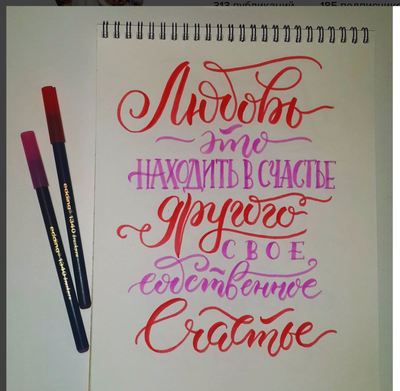 313 публикаций 185 подписчик
Любовь
это
НАХОДИТЬ В СЧАСТЬЕ
другого
СВОЕ
собственное
Счастье
edding 1340 brushpen
edding 1340 brushpen